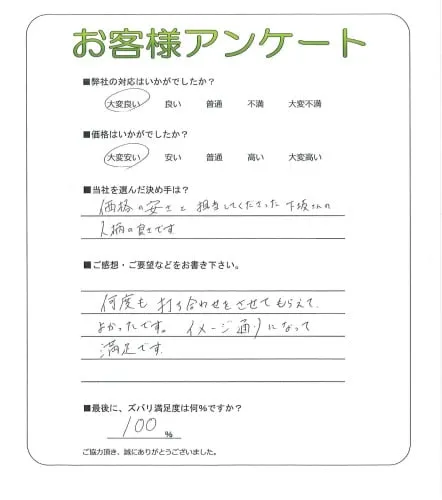 お客様アンケート
■弊社の対応はいかがでしたか？
大変良い 良い 普通 不満 大変不満
■価格はいかがでしたか？
大変安い 安い 普通 高い 大変高い
■当社を選んだ決め手は？
価格の安さと担当してくださった下坂さんの
人柄の良さです
■ご感想・ご要望などをお書き下さい。
何度も打ち合わせをさせてもらえて、
よかったです。イメージ通りになって
満足です
■最後に、ズバリ満足度は何％ですか？
100 %
ご協力頂き、誠にありがとうございました。